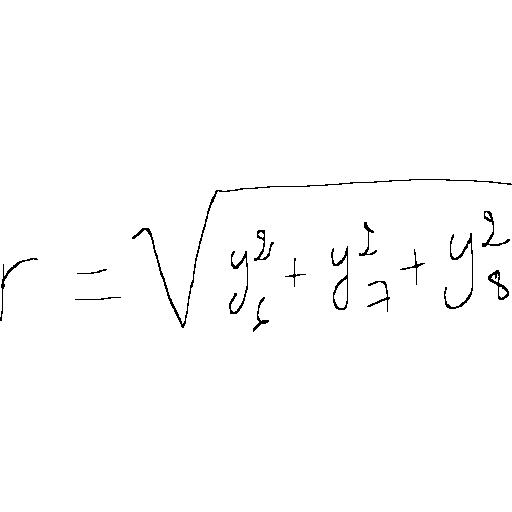 r = √(y₆² + y₇² + y₈²)